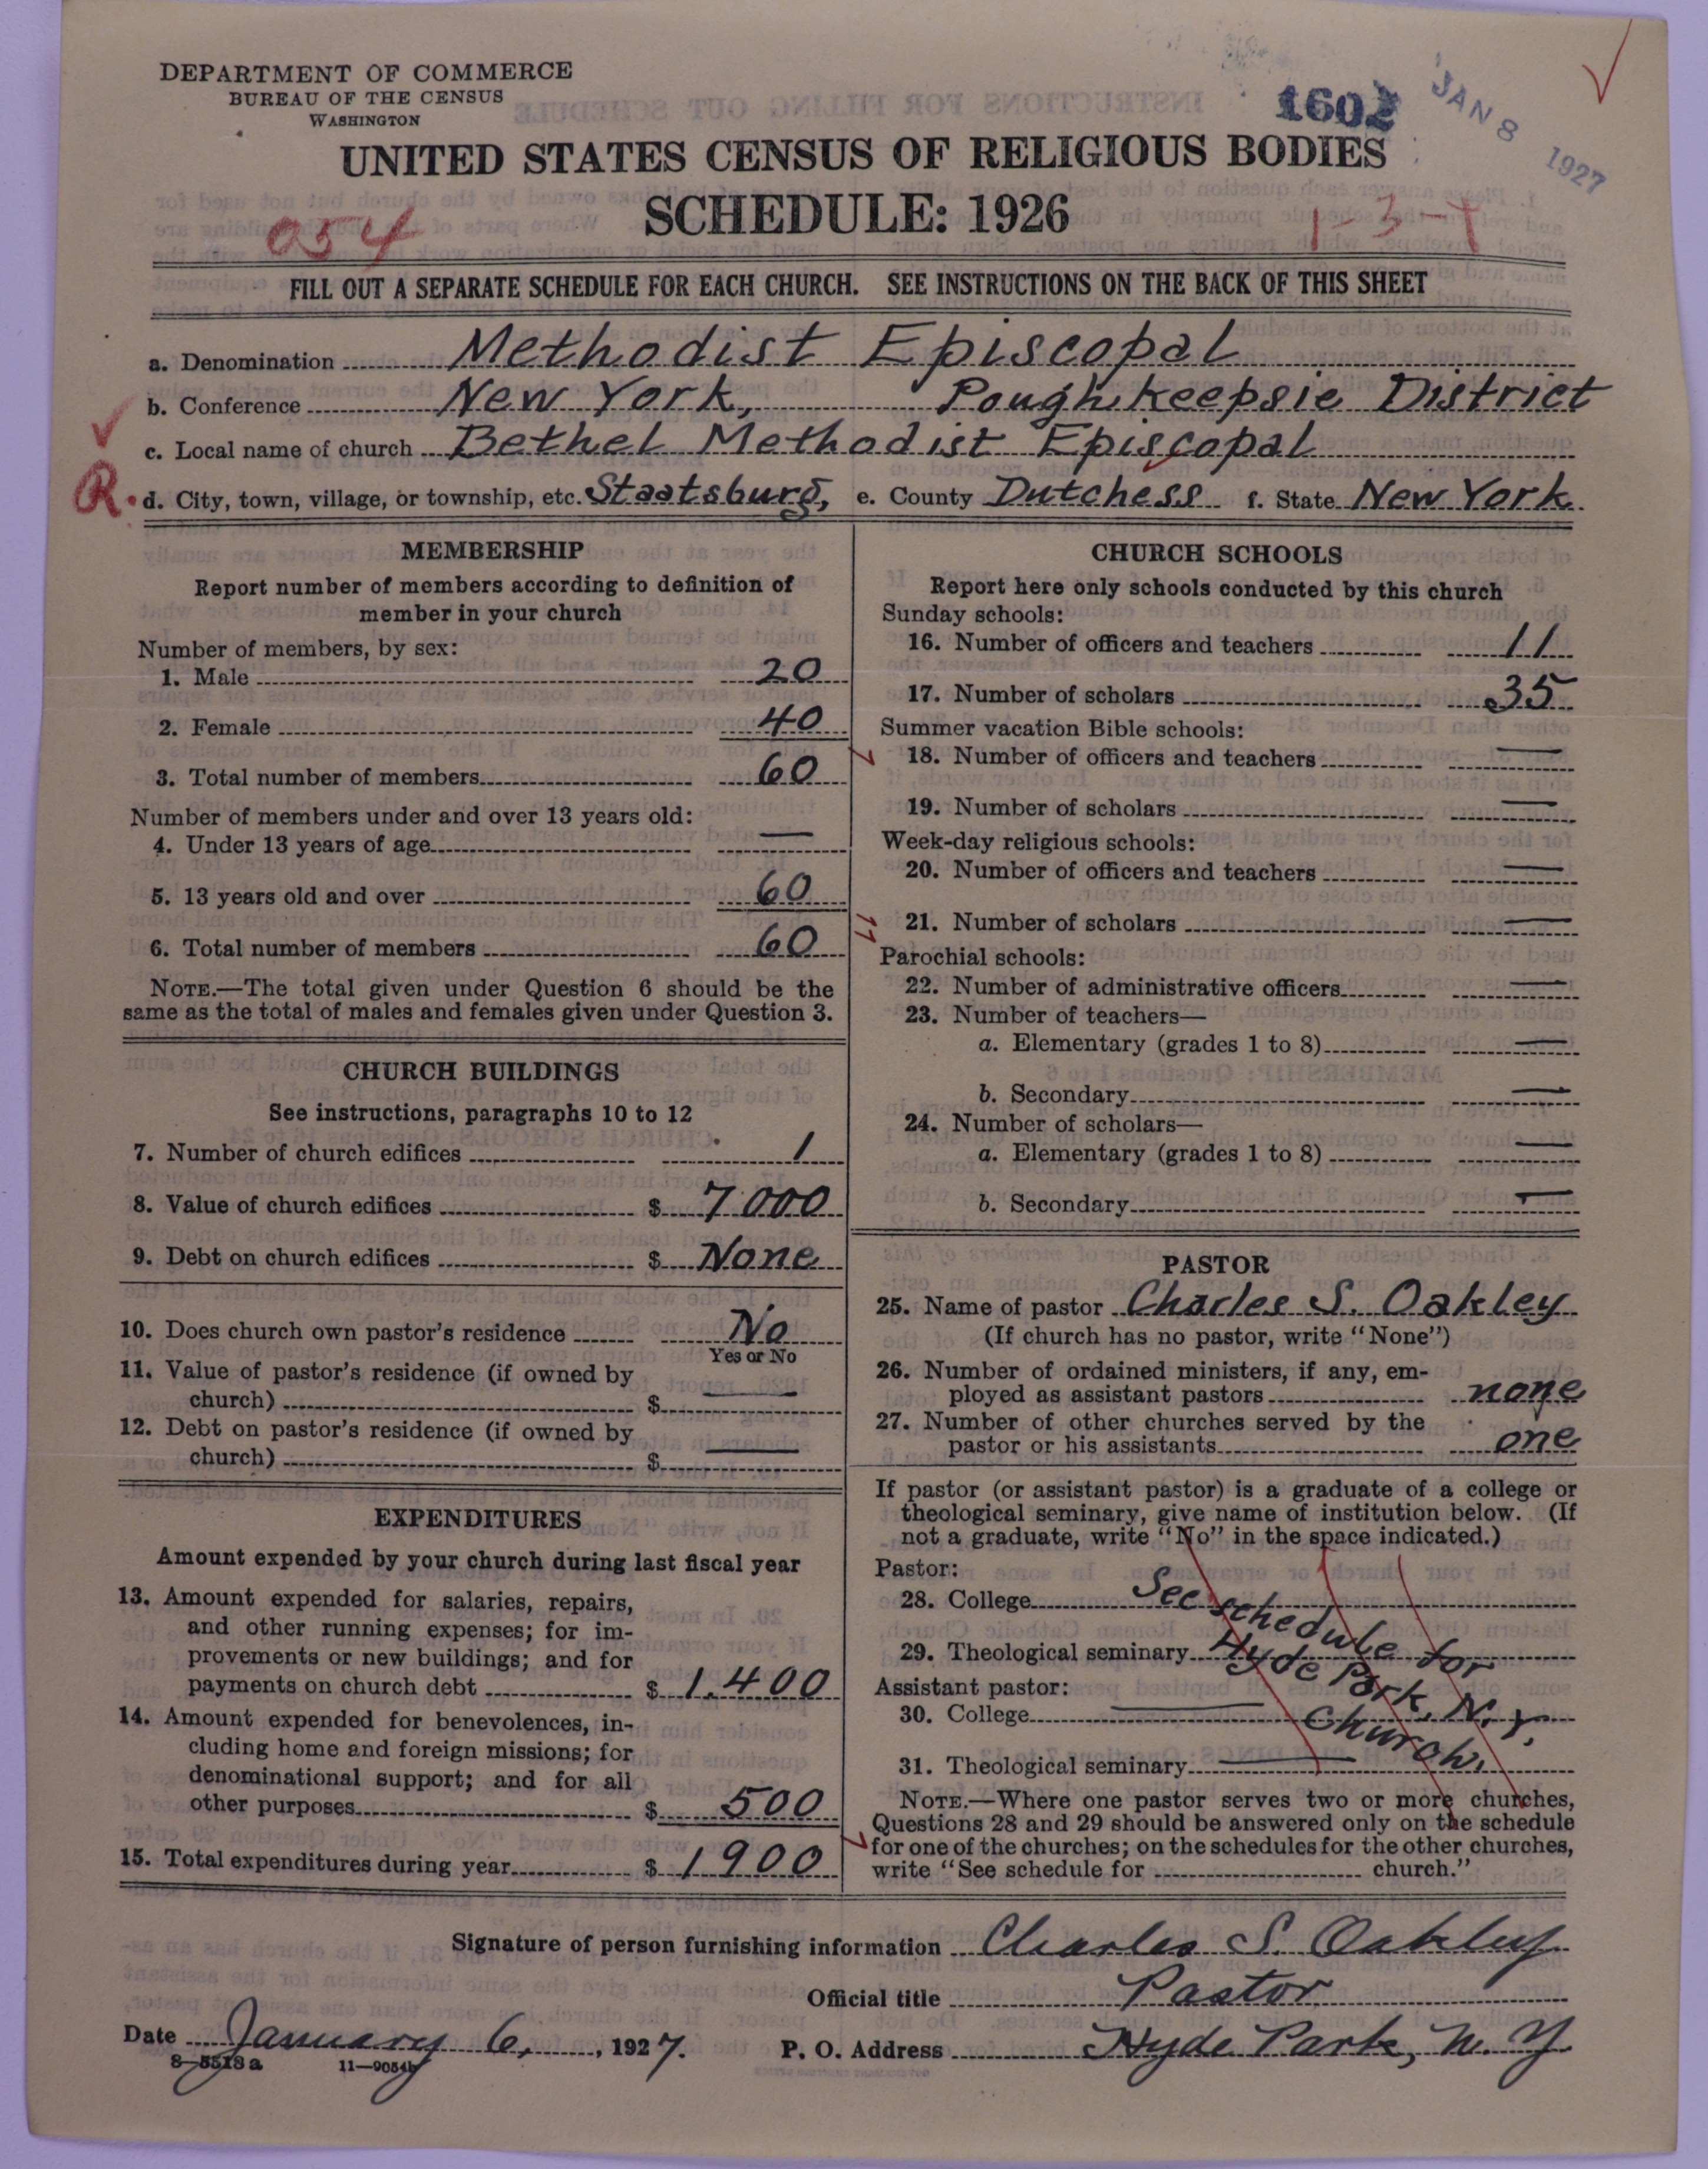 DEPARTMENT OF COMMERCE
BUREAU OF THE CENSUS
WASHINGTON
1602
JAN 8 1927
UNITED STATES CENSUS OF RELIGIOUS BODIES
SCHEDULE: 1926
054
1-3-
FILL OUT A SEPARATE SCHEDULE FOR EACH CHURCH. SEE INSTRUCTIONS ON THE BACK OF THIS SHEET
a. Denomination Methodist Episcopal
b. Conference New York, Poughkeepsie District
c. Local name of church Bethel Methodist Episcopal
R. d. City, town, village, or township, etc. Staatsburg, e. County Dutchess f. State New York.
MEMBERSHIP
Report number of members according to definition of
member in your church
Number of members, by sex:
1. Male 20
2. Female 40
3. Total number of members 60
Number of members under and over 13 years old:
4. Under 13 years of age —
5. 13 years old and over 60
6. Total number of members 60
NOTE.—The total given under Question 6 should be the
same as the total of males and females given under Question 3.
CHURCH BUILDINGS
See instructions, paragraphs 10 to 12
7. Number of church edifices 1
8. Value of church edifices $ 7000
9. Debt on church edifices $ None
10. Does church own pastor's residence No
Yes or No
11. Value of pastor's residence (if owned by
church) $ —
12. Debt on pastor's residence (if owned by
church) $ —
EXPENDITURES
Amount expended by your church during last fiscal year
13. Amount expended for salaries, repairs,
and other running expenses; for im-
provements or new buildings; and for
payments on church debt $ 1,400
14. Amount expended for benevolences, in-
cluding home and foreign missions; for
denominational support; and for all
other purposes $ 500
15. Total expenditures during year $ 1900
CHURCH SCHOOLS
Report here only schools conducted by this church
Sunday schools:
16. Number of officers and teachers 11
17. Number of scholars 35
Summer vacation Bible schools:
18. Number of officers and teachers —
19. Number of scholars —
Week-day religious schools:
20. Number of officers and teachers —
21. Number of scholars —
Parochial schools:
22. Number of administrative officers —
23. Number of teachers—
a. Elementary (grades 1 to 8) —
b. Secondary —
24. Number of scholars—
a. Elementary (grades 1 to 8) —
b. Secondary —
PASTOR
25. Name of pastor Charles S. Oakley
(If church has no pastor, write "None")
26. Number of ordained ministers, if any, em-
ployed as assistant pastors none
27. Number of other churches served by the
pastor or his assistants one
If pastor (or assistant pastor) is a graduate of a college or
theological seminary, give name of institution below. (If
not a graduate, write "No" in the space indicated.)
Pastor:
28. College See schedule for
29. Theological seminary Hyde Park, N.Y.
Assistant pastor:
30. College — Church.
31. Theological seminary —
NOTE.—Where one pastor serves two or more churches,
Questions 28 and 29 should be answered only on the schedule
for one of the churches; on the schedules for the other churches,
write "See schedule for church."
Signature of person furnishing information Charles S. Oakley
Official title Pastor
Date January 6, , 1927. P. O. Address Hyde Park, N. Y.
8—5518a 11—9054b